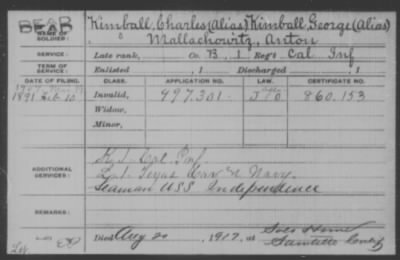 DEAD
Kimball, Charles (Alias) Kimball, George (Alias)
NAME OF SOLDIER:
Mallachowitz, Anton
SERVICE:
Late rank, Co. B, 1 Reg't Cal Inf
TERM OF SERVICE:
Enlisted , 1 Discharged , 1
DATE OF FILING. CLASS. APPLICATION NO. LAW. CERTIFICATE NO.
1891 Feb 10 Invalid, 497.301 860.153
Widow,
Minor,
ADDITIONAL SERVICES:
K, 1- Cal. Inf.
L, 1- Texas Cav & Navy.
Seaman USS. Independence
REMARKS:
Died Aug 20, 1917, at Sols Home